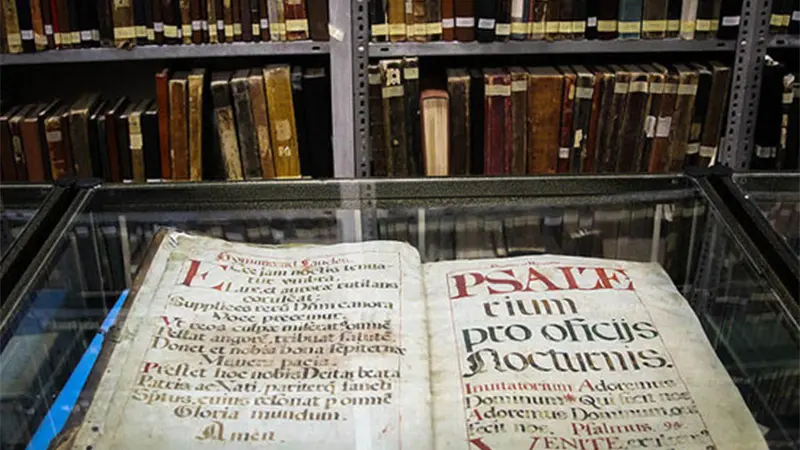 ad Laudes.
Ecce jam noctis tenua
tur umbra,
Lux et auroræ rutilans
coruscat:
Supplices rerū Dn̄m canora
Voce precemur.
Vt reos culpæ miserat omnē
Pellat angorē, tribuat salutē,
Donet et nobis bona sēpiternæ
Munera pacis.
Præstet hoc nobis Deitas beata
Patris ac Nati, pariterq; sancti
Sptus, cuius resonat p omnē
Gloria mundum.
Amen.
PSALTE
rium
pro oficijs
Nocturnis.
Inuitatorium Adoremus
Dominum* Qui fecit nos
Adoremus Dominum
fecit nos. Psalmus. 94
VENITE